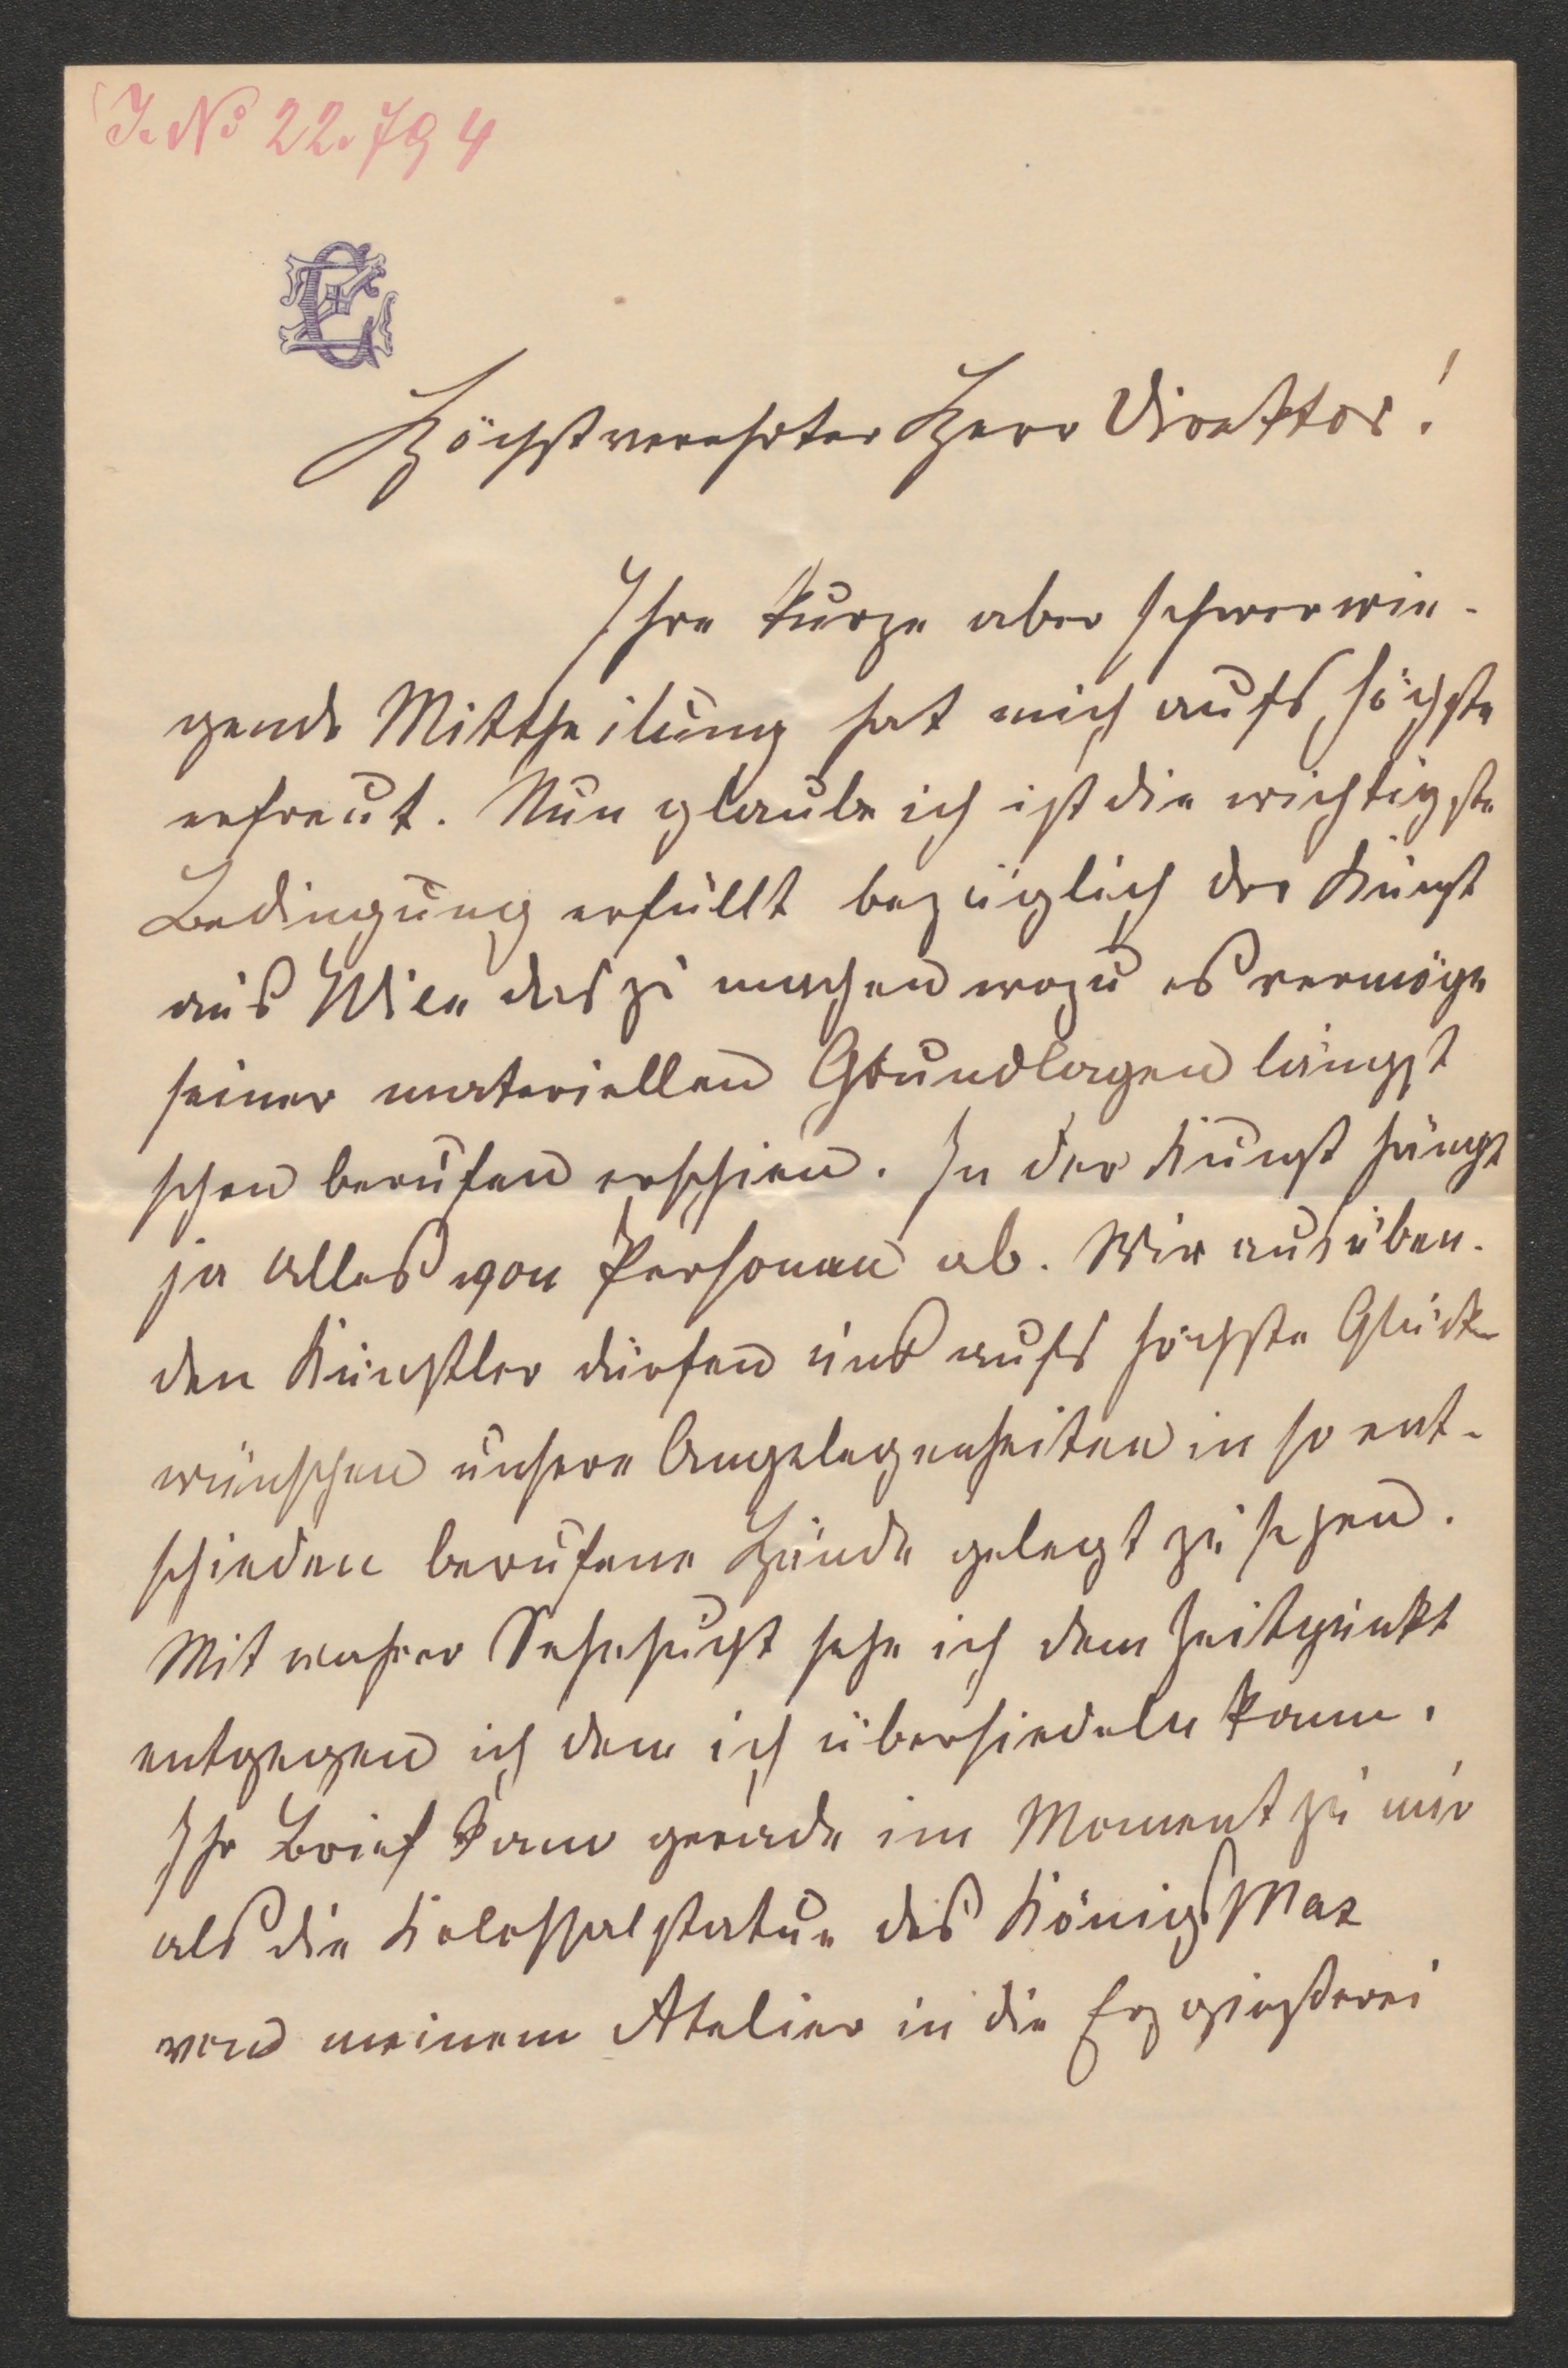 I.N. 22.794
Höchstverehrter Herr Direktor!
Ihre kurze aber schwerwie-
gende Mittheilung hat mich aufs höchste
erfreut. Nun glaube ich ist die wichtigste
Bedingung erfüllt bezüglich der Kunst
aus Wien das zu machen wozu es vermöge
seiner materiellen Grundlagen längst
schon berufen erschien. In der Kunst hängt
ja alles von Personen ab. Wir ausüben-
den Künstler dürfen uns aufs höchste Glück
wünschen unsere Angelegenheiten in so ent-
schieden berufene Hände gelegt zu sehen.
Mit wahrer Sehnsucht sehe ich dem Zeitpunkt
entgegen ich dem ich übersiedeln kann.
Ihr Brief kam gerade im Moment zu mir
als die Kolossalstatue des Königs Max
von meinem Atelier in die Erzgießerei